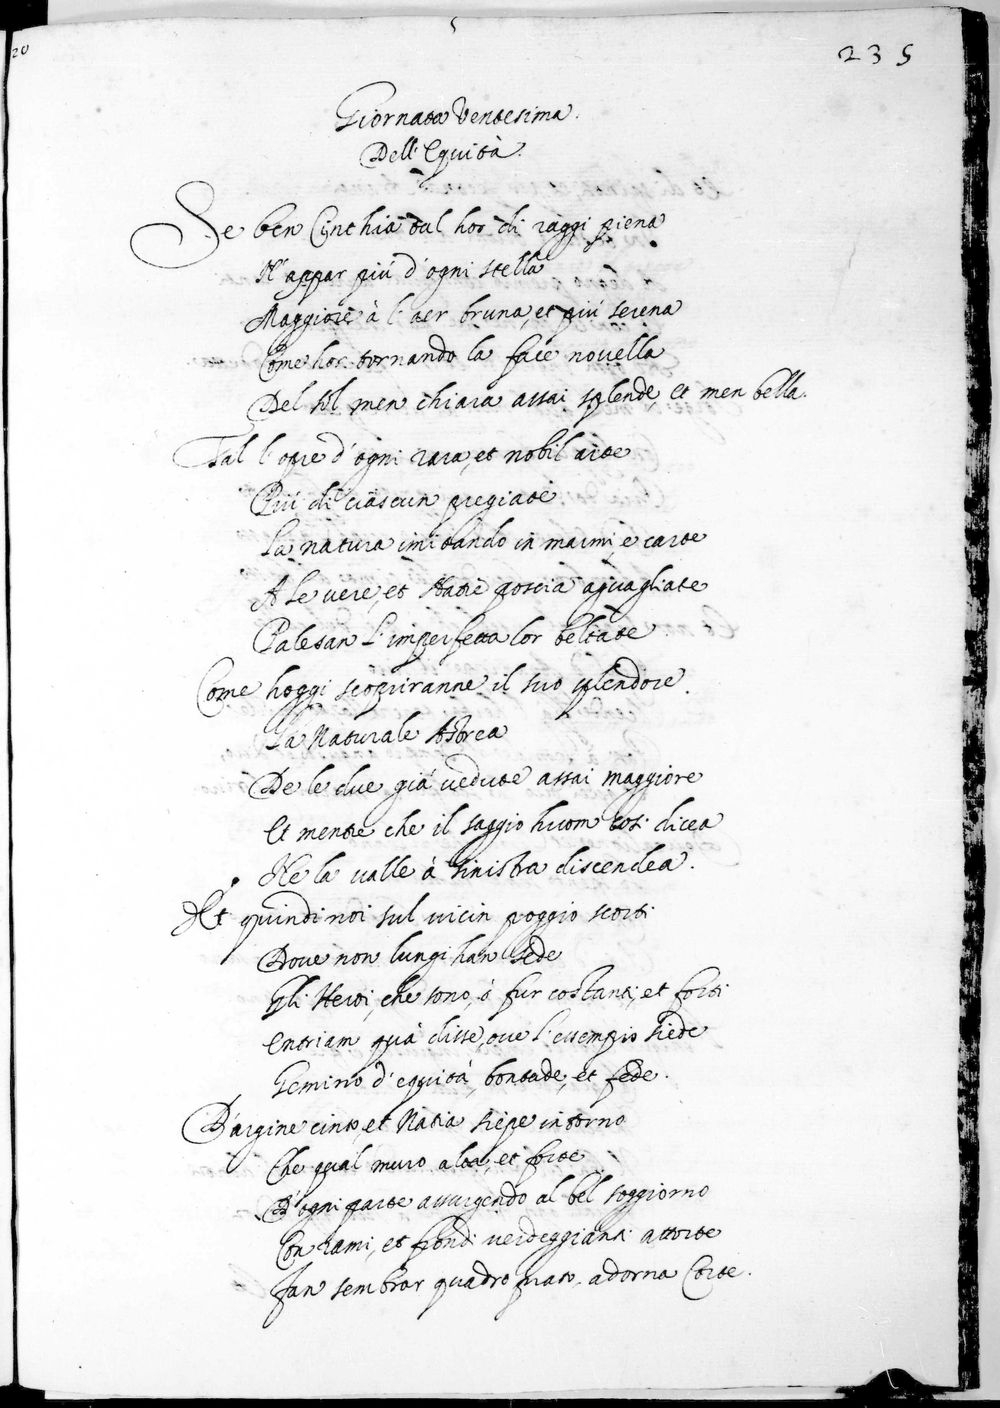 20
235
Giornata Ventesima.
Dell' Equità.
Se ben Cinthia tal hor di raggi piena
N' appar più d'ogni stella
Maggiore à l'aer bruna, et più serena
Come hor tornando la face novella
Del Sol men chiara assai splende, et men bella.
Tal l'opre d'ogni rara, et nobil arte
Più di ciascun pregiate
La natura imitando in marmi, e carte
A le vere, et state poscia aguagliate
Palesan l'imperfetta lor beltate
Come hoggi scopriranne il suo splendore.
La Naturale Astrea
De le due già vedute assai maggiore
Et mentre che il saggio huom così dicea
Ne la valle à sinistra discendea.
Et quindi noi sul vicin poggio scorti
Dove non lungi han sede
Gli Heroi, che sono, ò fur costanti, et forti
Entriam quà disse, ove l'essempio siede
Gemino d'equità, bontade, et fede.
D'argine cinto, et Natia siepe intorno
Che qual muro alta, et forte
D'ogni parte avvigendo al bel soggiorno
Con rami, et frondi verdeggianti attorte
Fan sembrar quadro prato adorna Corte.